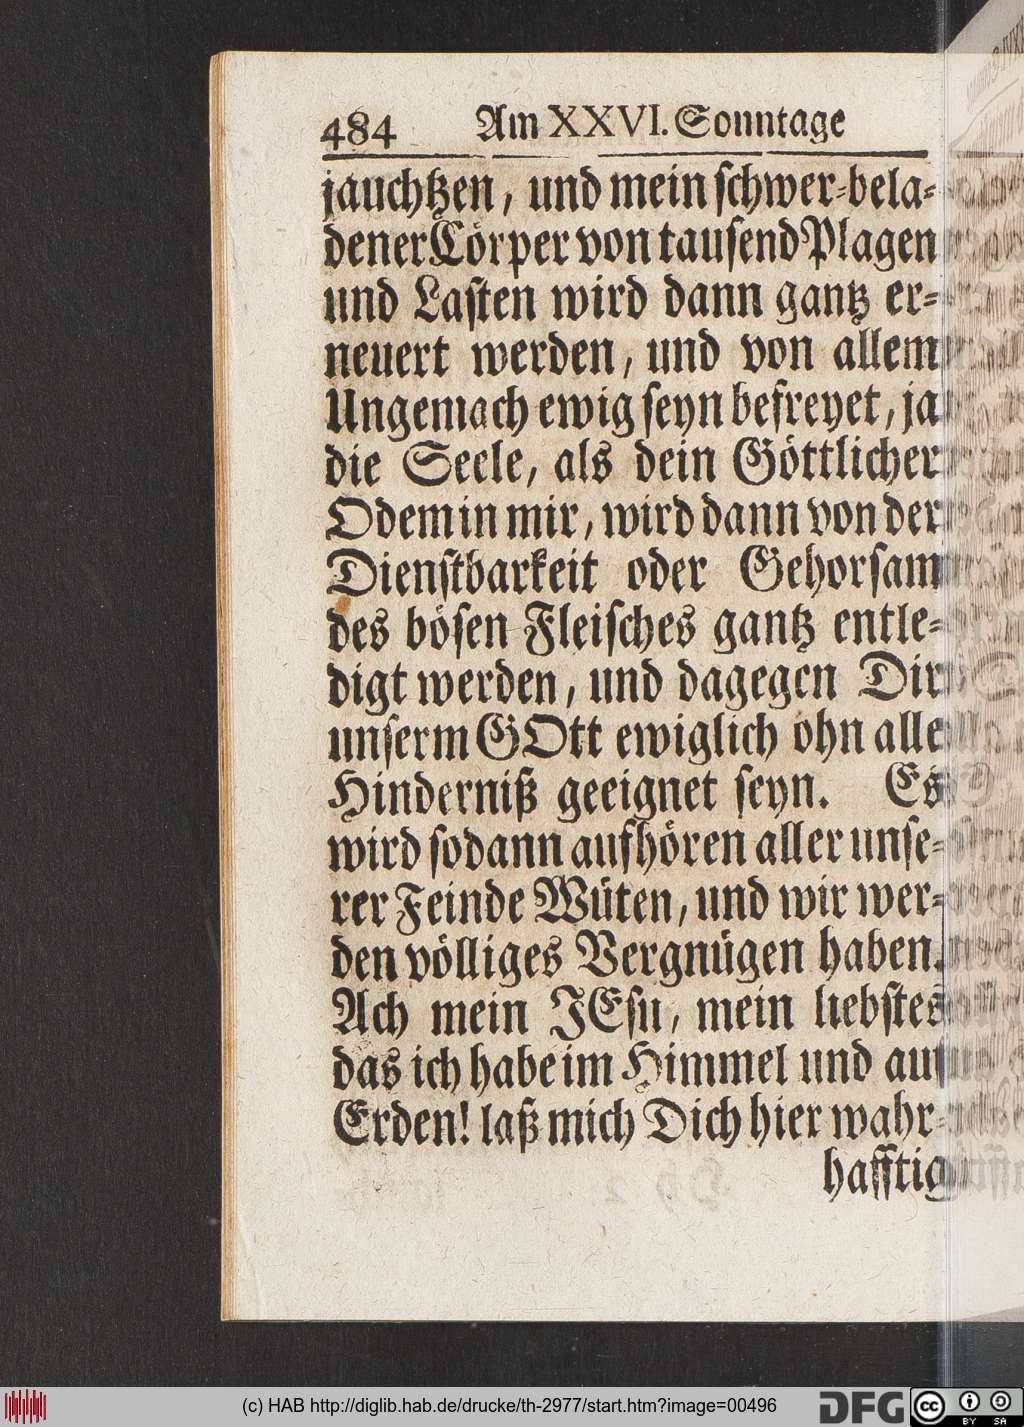 484 Am XXVI. Sonntage
jauchtzen, und mein schwer-bela-
dener Cörper von tausend Plagen
und Lasten wird dann gantz er-
neuert werden, und von allem
Ungemach ewig seyn befreyet, ja
die Seele, als dein Göttlicher
Odem in mir, wird dann von der
Dienstbarkeit oder Gehorsam
des bösen Fleisches gantz entle-
digt werden, und dagegen Dir
unserm GOtt ewiglich ohn alle
Hinderniß geeignet seyn. Es
wird sodann aufhören aller unse-
rer Feinde Wüten, und wir wer-
den völliges Vergnügen haben.
Ach mein JEsu, mein liebstes
das ich habe im Himmel und auf
Erden! laß mich Dich hier wahr-
hafftig
(c) HAB http://diglib.hab.de/drucke/th-2977/start.htm?image=00496
DFG
cc BY SA